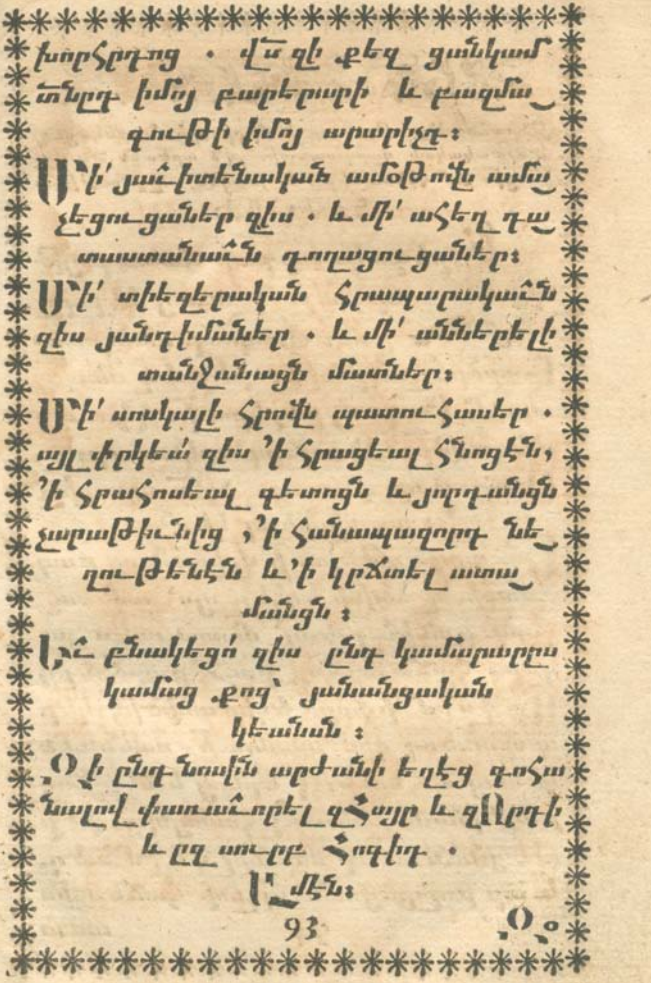 խորհրդոց . վա՜ զի քեզ ցանկամ
տ՜նրդ իմոյ բարերարի և բազմա
գու թի իմոյ արարիչդ։
Մի՛ յաւիտենական ամօթովն ամա
չեցուցաներ զիս . և մի՛ ահեղ դա
տաստանաւն դողացուցաներ։
Մի՛ տիեզերական հրապարակաւն
զիս յանդիմաներ . և մի՛ աններելի
տանջանացն մատներ։
Մի՛ սոսկալի հրովն պատուհասեր .
այլ փրկեա՛ զիս ՚ի հրացեալ հնոցէն,
՚ի հրահոսեալ գետոցն և յորդանցն
չարաթիւնից , ՚ի հանապազորդ նե
ղութենէն և ՚ի կրճտել ատա
մանցն ։
Եւ բնակեցո՛ զիս ընդ կամարարըս
կամաց քոց՝ յանանցական
կեանսն ։
Զի ընդ նոսին արժանի եղէց գոհա
նալով փառաւորել զՀայր և զՈրդի
և ըզ սուրբ Հոգիդ .
Ամէն։
93 Չօ